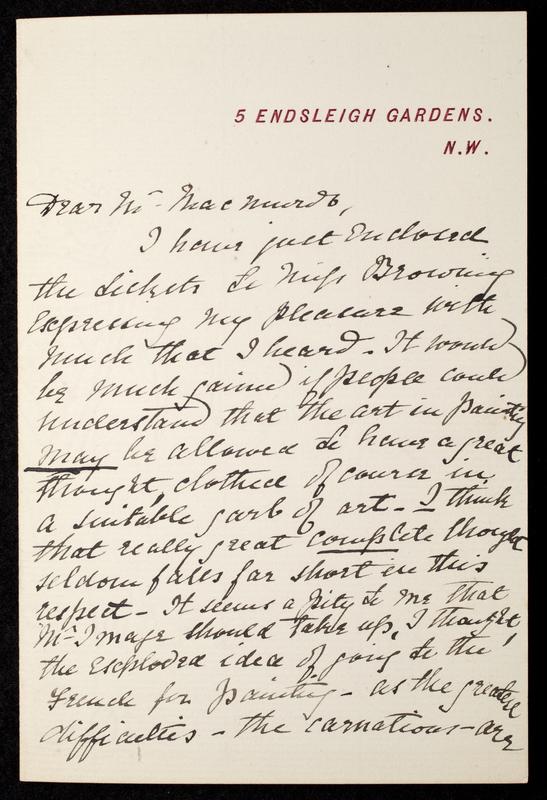 5 ENDSLEIGH GARDENS.
N.W.
Dear Mr. Macmurdo,
I have just enclosed
the tickets to Miss Browning
expressing my pleasure with
much that I heard - It would
be much gained if people could
understand that the art in painting
may be allowed to have a great
thought, clothed of course in
a suitable garb of art - I think
that really great complete thought
seldom falls far short in this
respect - It seems a pity to me that
Mr. Image should take up, I thought,
the exploded idea of going to the
French for painting - as the greatest
difficulties - the carnations - are